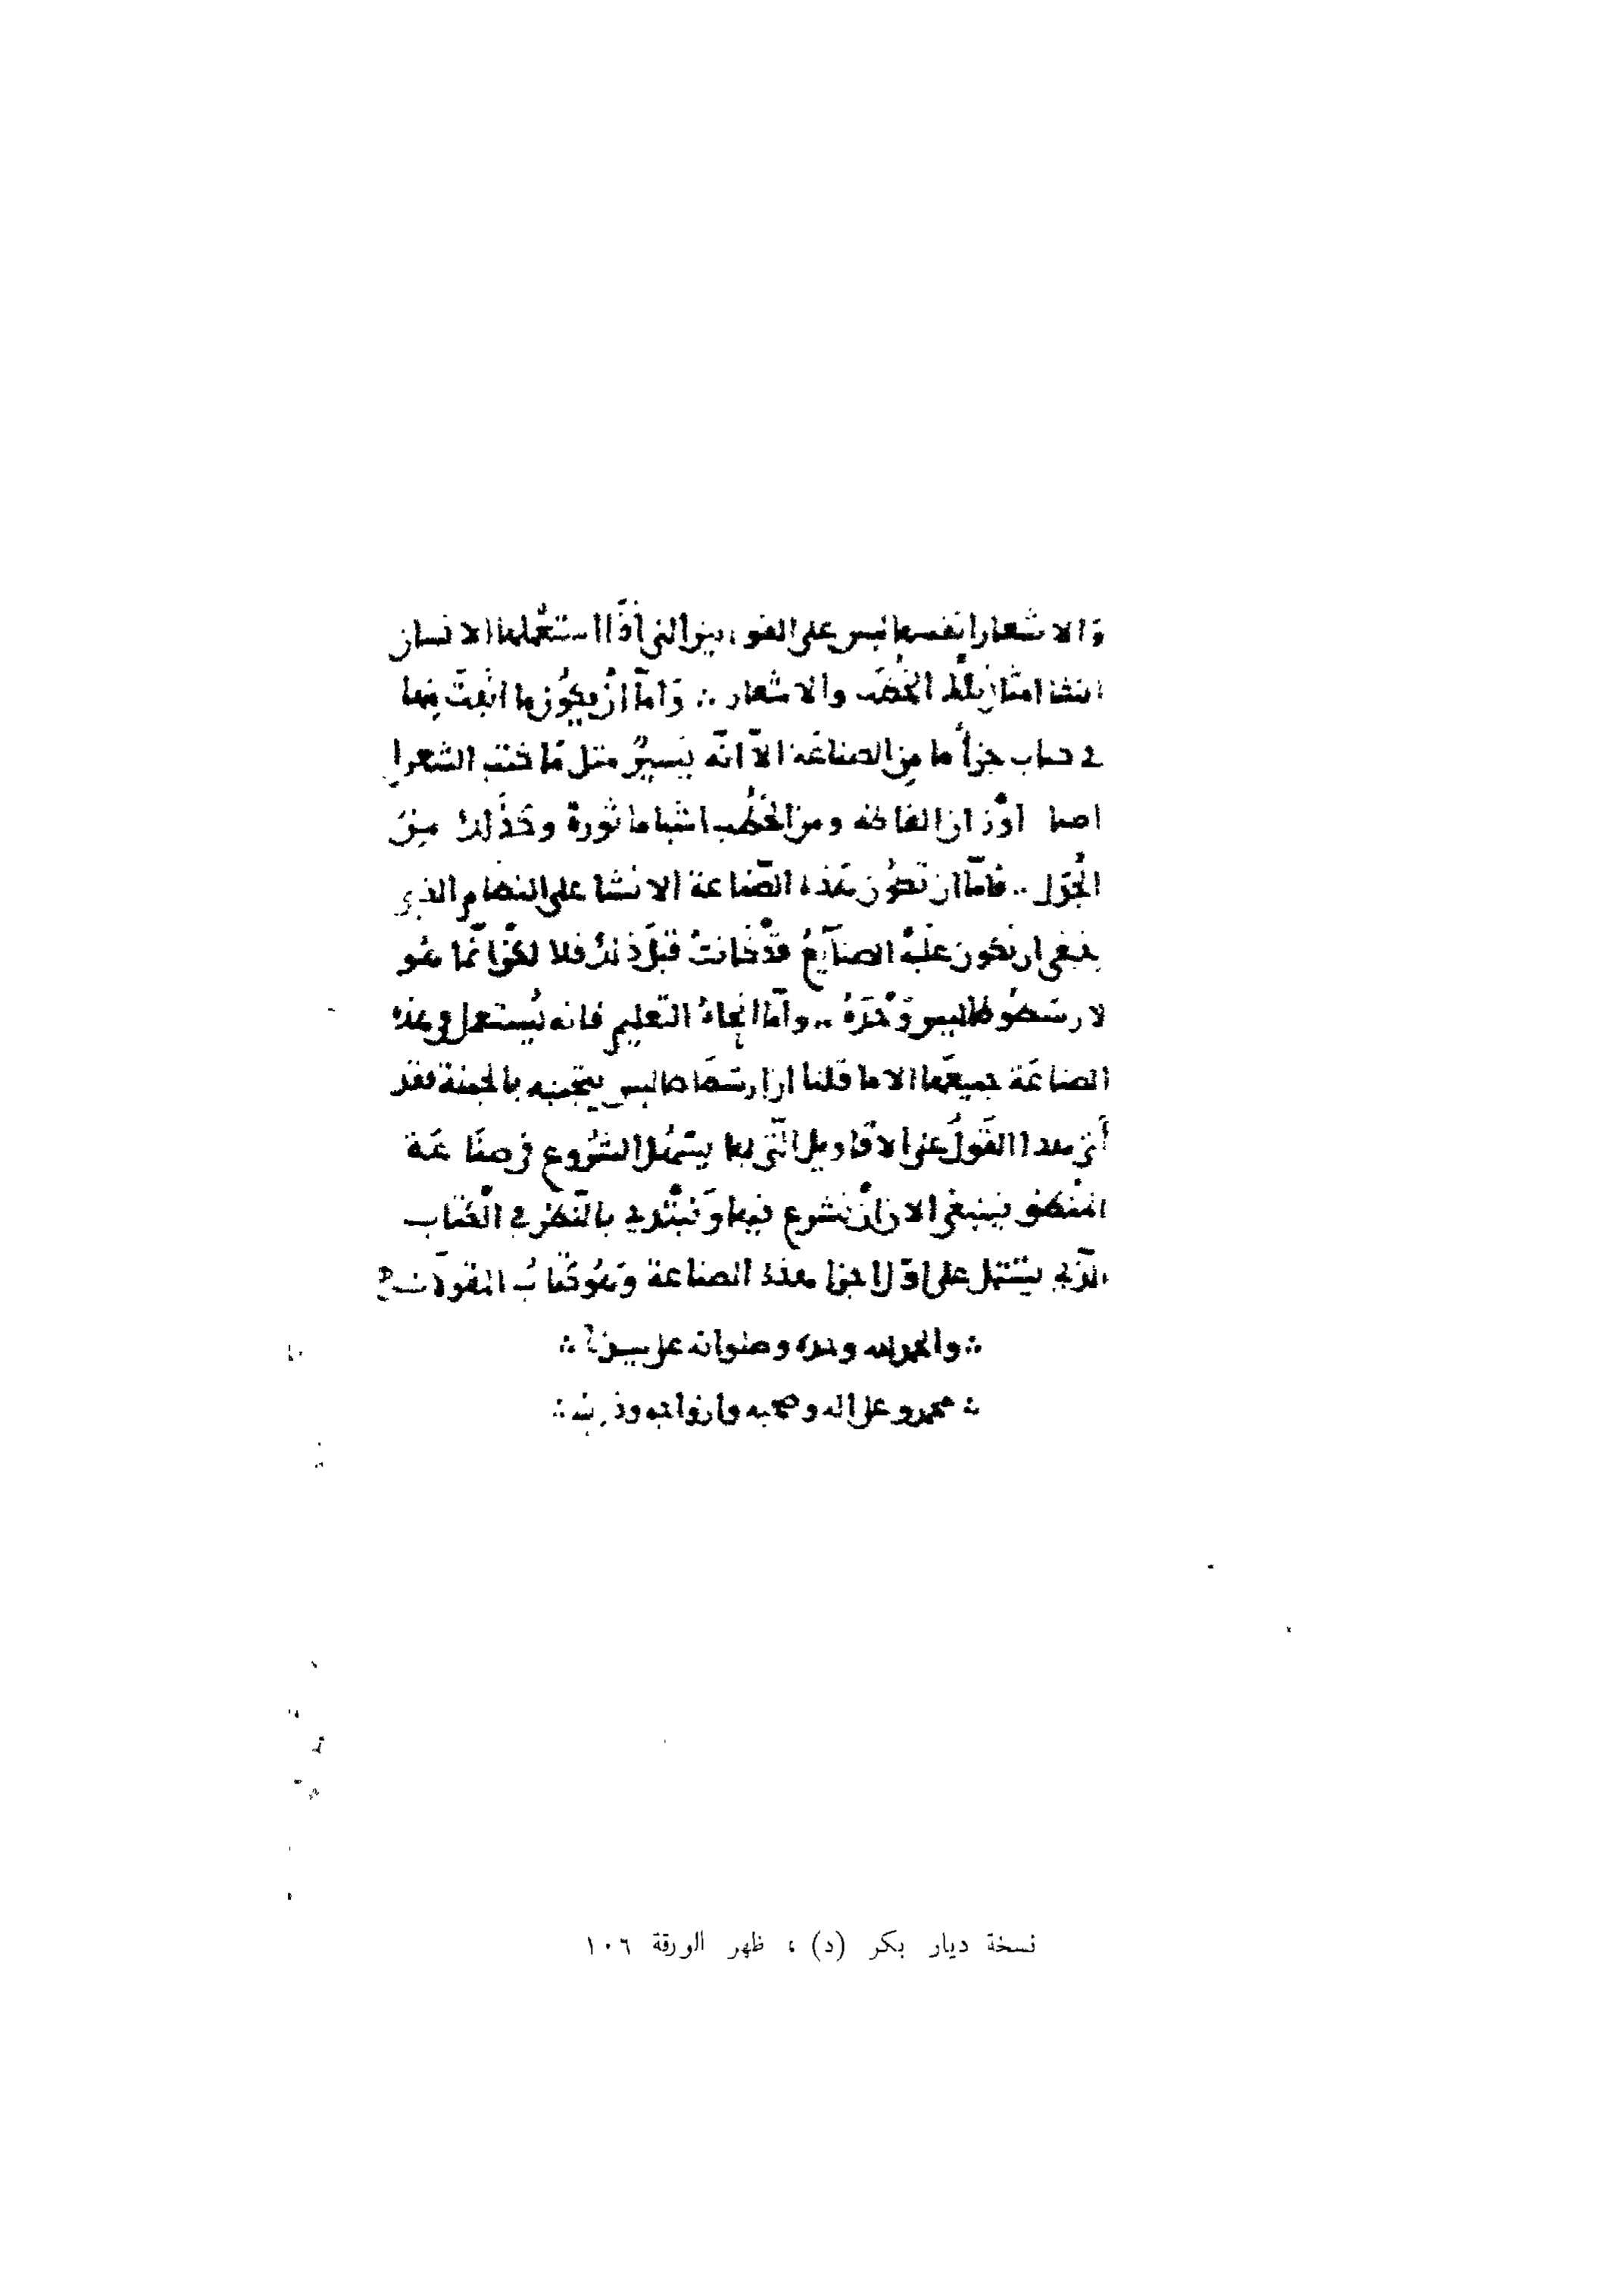 والاشعار انفسها ليس على القوانين التي اذا استعملها الانسان
انشا امثال تلك الخطب والاشعار ∴ وَامّا انْ يكوُن ما اثبت منها
في كتاب جزأ ما من الصناعَة الاّ انّه يَسيرٌ مثل مَا كتب الشعرا
ايضا اوْزان الفاظه ومن الخُطب اشيا ماثورة وكَذَلك مِنَ
الجُدَل ∴ فامّا ان تكُون هَذه الصّناعة الانشا على النظام الذي
ينبغي ان تكون علَيْه الصنآيعُ قدْ كانتْ قبل ذلك فلا لكن انّما هُو
لارسَطوُطاليس وَحْدَهُ ∴ وامّا انحاءُ التّعليم فانه تُستعمل في هذه
الصناعَة جميعُها الا ما قلنا ان ارسَطَاطاليس يتجنبه بالجملة فقد
أتى هذا القولُ على الاقاويل التّي بها يسْهُل الشُروع في صنَاعَة
المنْطق فينبغي الان انْ نشرع فيها وَنبْتْدي بالنّظر في الكتاب
الذّي يشتمل على اوّل اجزا هذه الصناعة وَهُو كتَابُ المقولاَت
∴ والحمد لله وحده وصلواته على سيدنا ∴
∴ محمد وعلى اله وصحبه وازواجه وذريته ∴
نسخة ديار بكر (د) ، ظهر الورقة ١٠٦